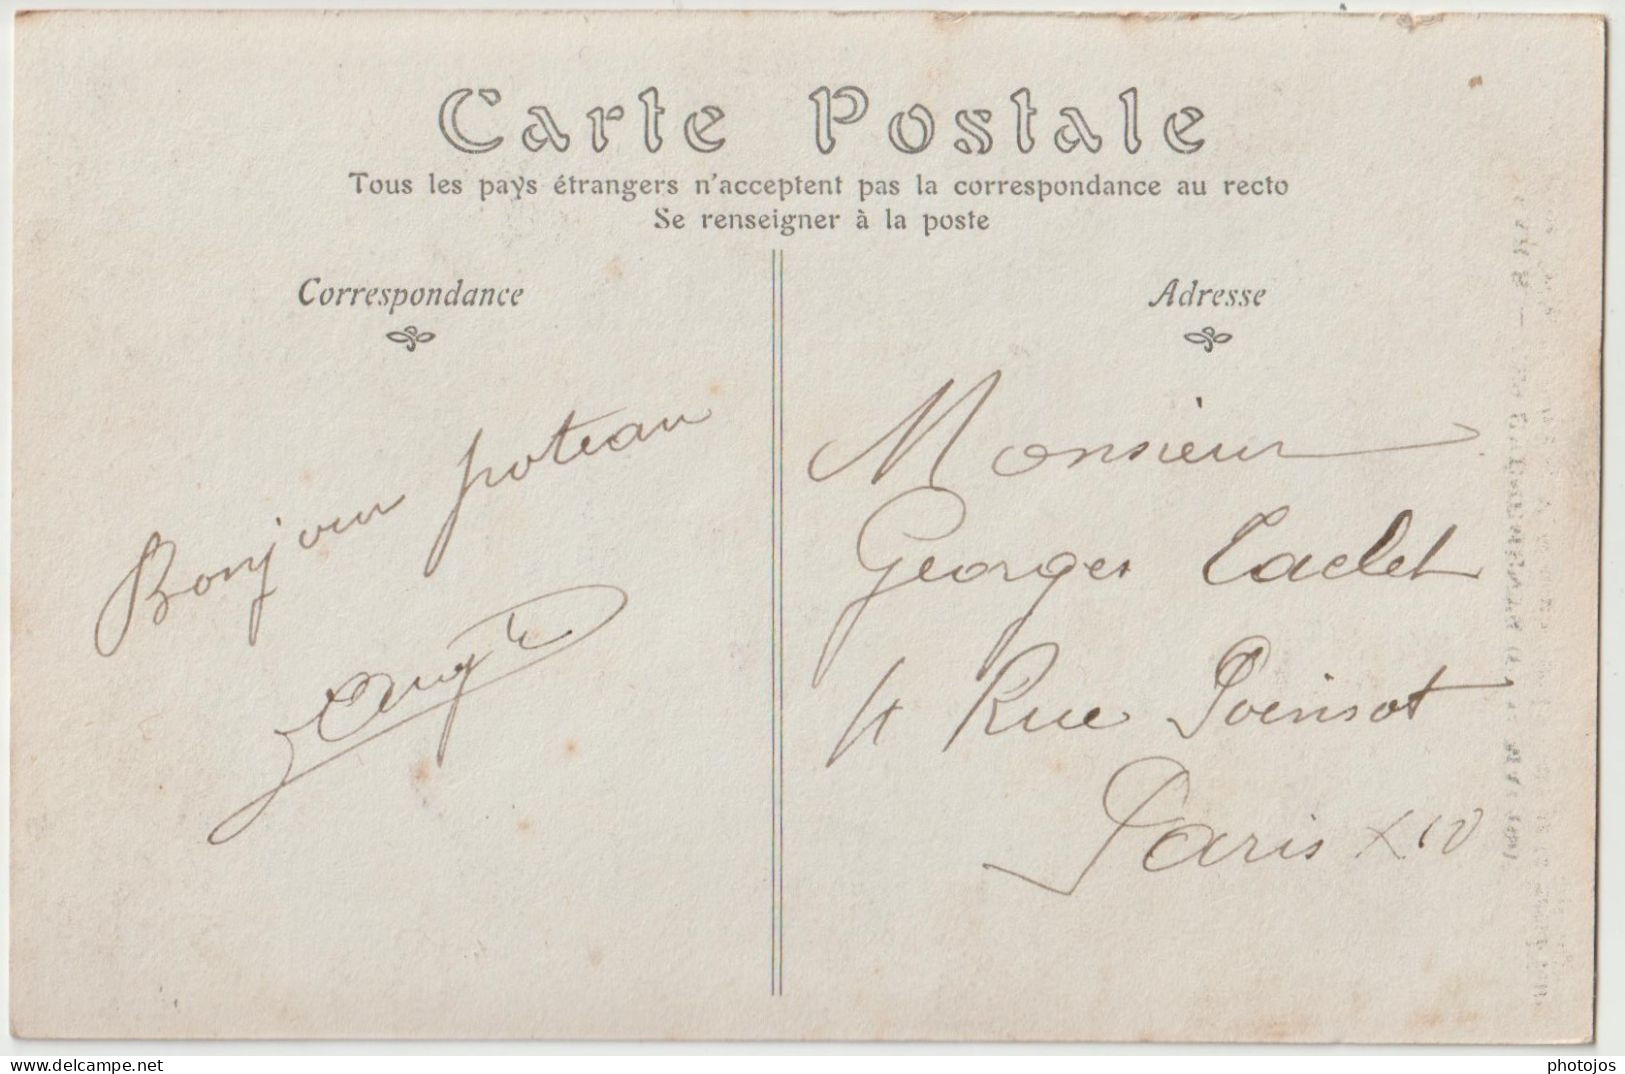 Carte Postale
Tous les pays étrangers n'acceptent pas la correspondance au recto
Se renseigner à la poste
Correspondance
Bonjour poteau
Adresse
Monsieur
Georges
Rue Poinsot
Paris XIV
www.delcampe.net
photojos